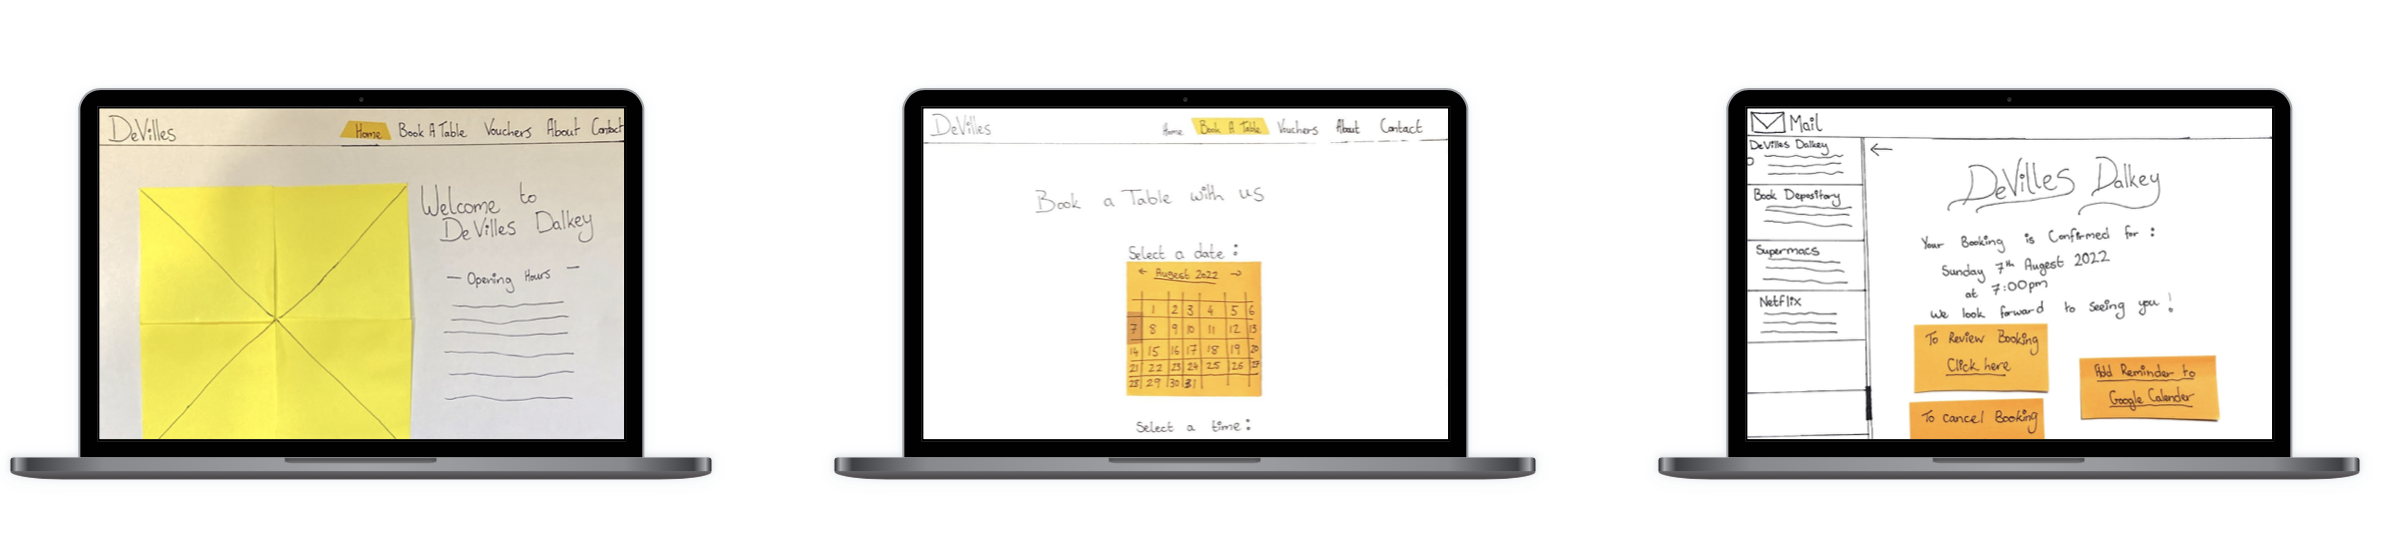 DeVilles
Home Book A Table Vouchers About Contact
Welcome to
DeVilles Dalkey
— Opening Hours —
DeVilles
Home Book A Table Vouchers About Contact
Book a Table with us
Select a date :
← Augest 2022 →
1 2 3 4 5 6
7 8 9 10 11 12 13
14 15 16 17 18 19 20
21 22 23 24 25 26 27
28 29 30 31
Select a time :
Mail
DeVilles Dalkey
Book Depository
Supermacs
Netflix
←
DeVilles Dalkey
Your Booking is Confirmed for :
Sunday 7th Augest 2022
at 7:00pm
We look forward to seeing you !
To Review Booking
Click here
Add Reminder to
Google Calender
To cancel Booking